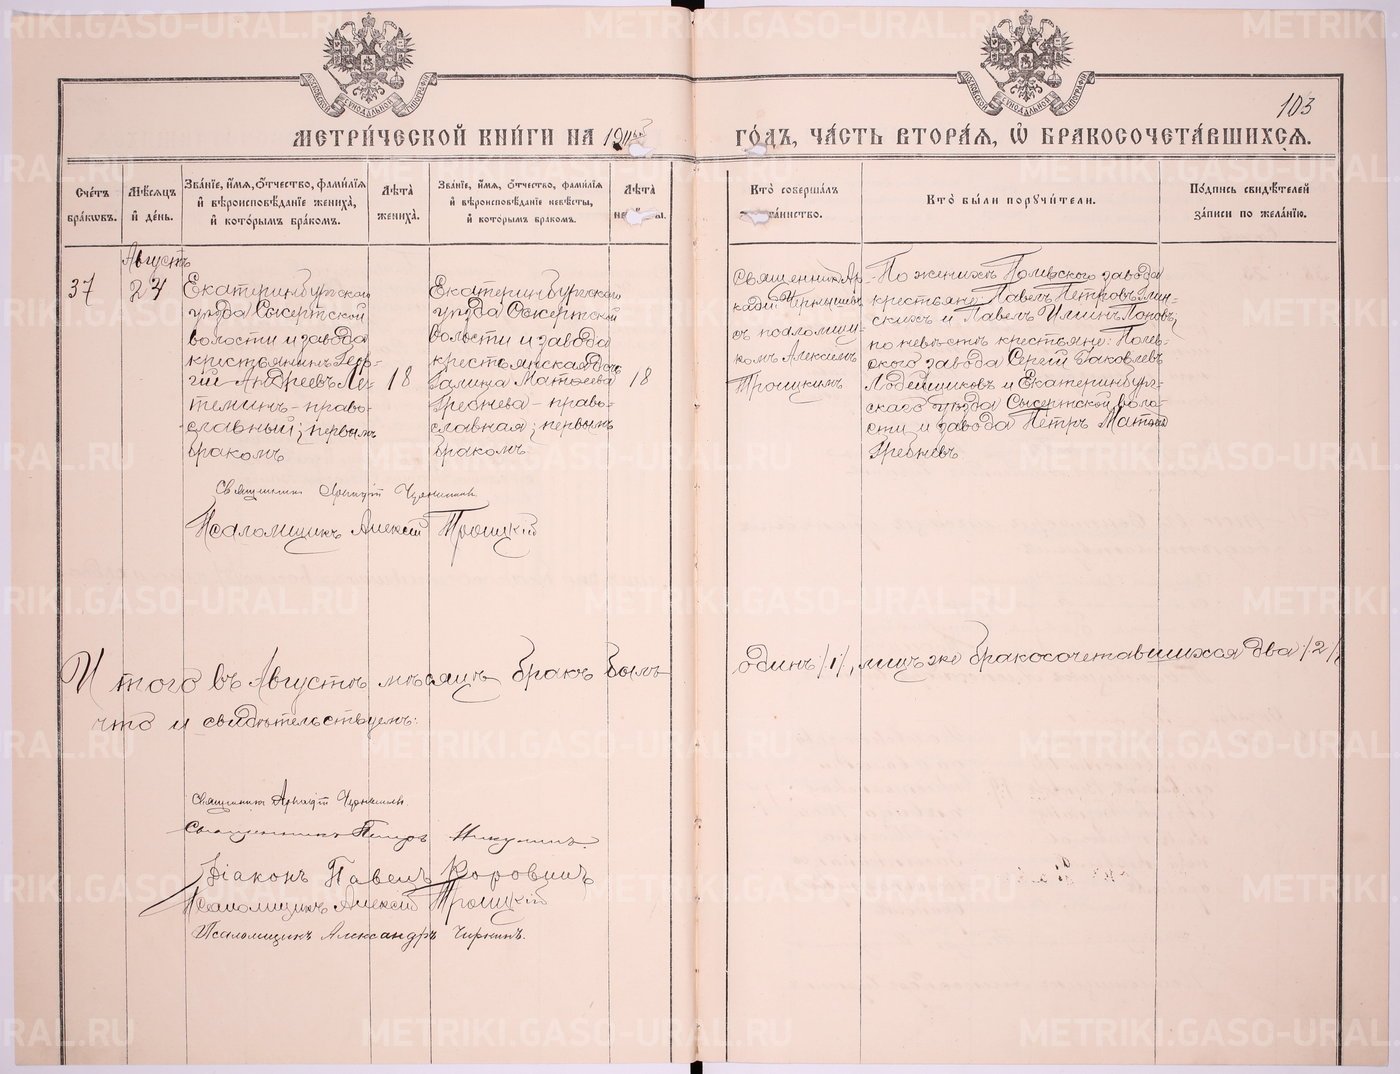 103
МЕТРИ́ЧЕСКОЙ КНИ́ГИ НА
ГО́ДЪ, ЧА́СТЬ ВТОРА́Я, Ѡ҆ БРАКОСОЧЕТА́ВШИХСЯ.
МОСКОВСКОЙ СУНОДАЛЬНОЙ ТИПОГРАФІИ
МОСКОВСКОЙ СУНОДАЛЬНОЙ ТИПОГРАФІИ
Сче́тъ бра́ковъ.
Мѣ́сяцъ и҆ де́нь.
Зва́нїе, и҆́мя, ѻ҆́тчество, фами́лїя и҆ вѣроисповѣ́данїе жениха̀, и҆ кото́рымъ бра́комъ.
Лѣ́та жениха̀.
Зва́нїе, и҆́мя, ѻ҆́тчество, фами́лїя и҆ вѣроисповѣ́данїе невѣ́сты, и҆ кото́рымъ бракомъ.
Лѣ́та
Кто̀ соверша́лъ та́инство.
Кто̀ бы́ли порꙋчи́тели.
По́дпись свидѣ́телей за́писи по жела́нїю.
Августъ
37
24
Екатеринбургскаго
уѣзда Сысертской
волости и завода
крестьянинъ Геор-
гій Андреевъ Ле-
теминъ - право-
славный; первымъ
бракомъ
18
Екатеринбургскаго
уѣзда Сысертской
волости и завода
крестьянская дочь
Галина Матѳеева
Гребнева - право-
славная; первымъ
бракомъ
18
Священникъ Ар-
кадій Чернышевъ
съ псаломщи-
комъ Алексіемъ
Троицкимъ
По женихѣ Полевского завода
крестьяне: Павелъ Петровъ
скихъ и Павелъ Ильинъ
по невѣстѣ крестьяне: Поле-
ского завода Сергѣй Яковлевъ
Лодейщиковъ и Екатеринбург-
скаго уѣзда Сысертской воло-
сти и завода Петръ Матѳеевъ
Гребневъ
Священникъ Аркадій Чернышевъ
Псаломщикъ Алексій Троицкій
Итого въ Августѣ мѣсяцѣ бракъ былъ одинъ /1/, лицъ же бракосочетавшихся два /2/,
что и свидѣтельствуемъ:
Священникъ Аркадій Чернышевъ
Священникъ Петръ Никулинъ.
Діаконъ Павелъ Коровинъ
Псаломщикъ Алексій Троицкій
Псаломщикъ Александръ Чиркинъ.
METRIKI.GASO-URAL.RU